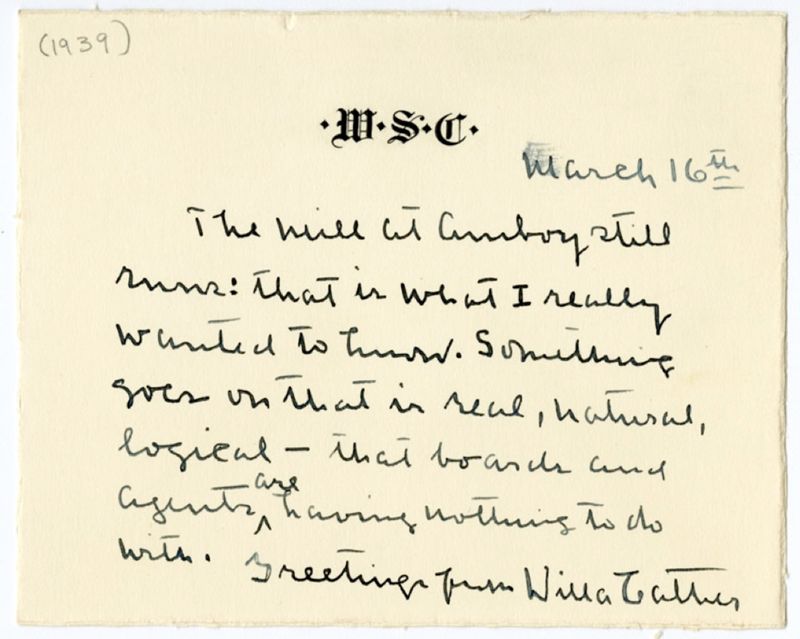 (1939)
·W·S·C·
March 16th
The mill at Amboy still
runs: that is what I really
wanted to know. Something
goes on that is real, natural,
logical — that boards and
are
agents ^ having nothing to do
with. Greetings from Willa Cather